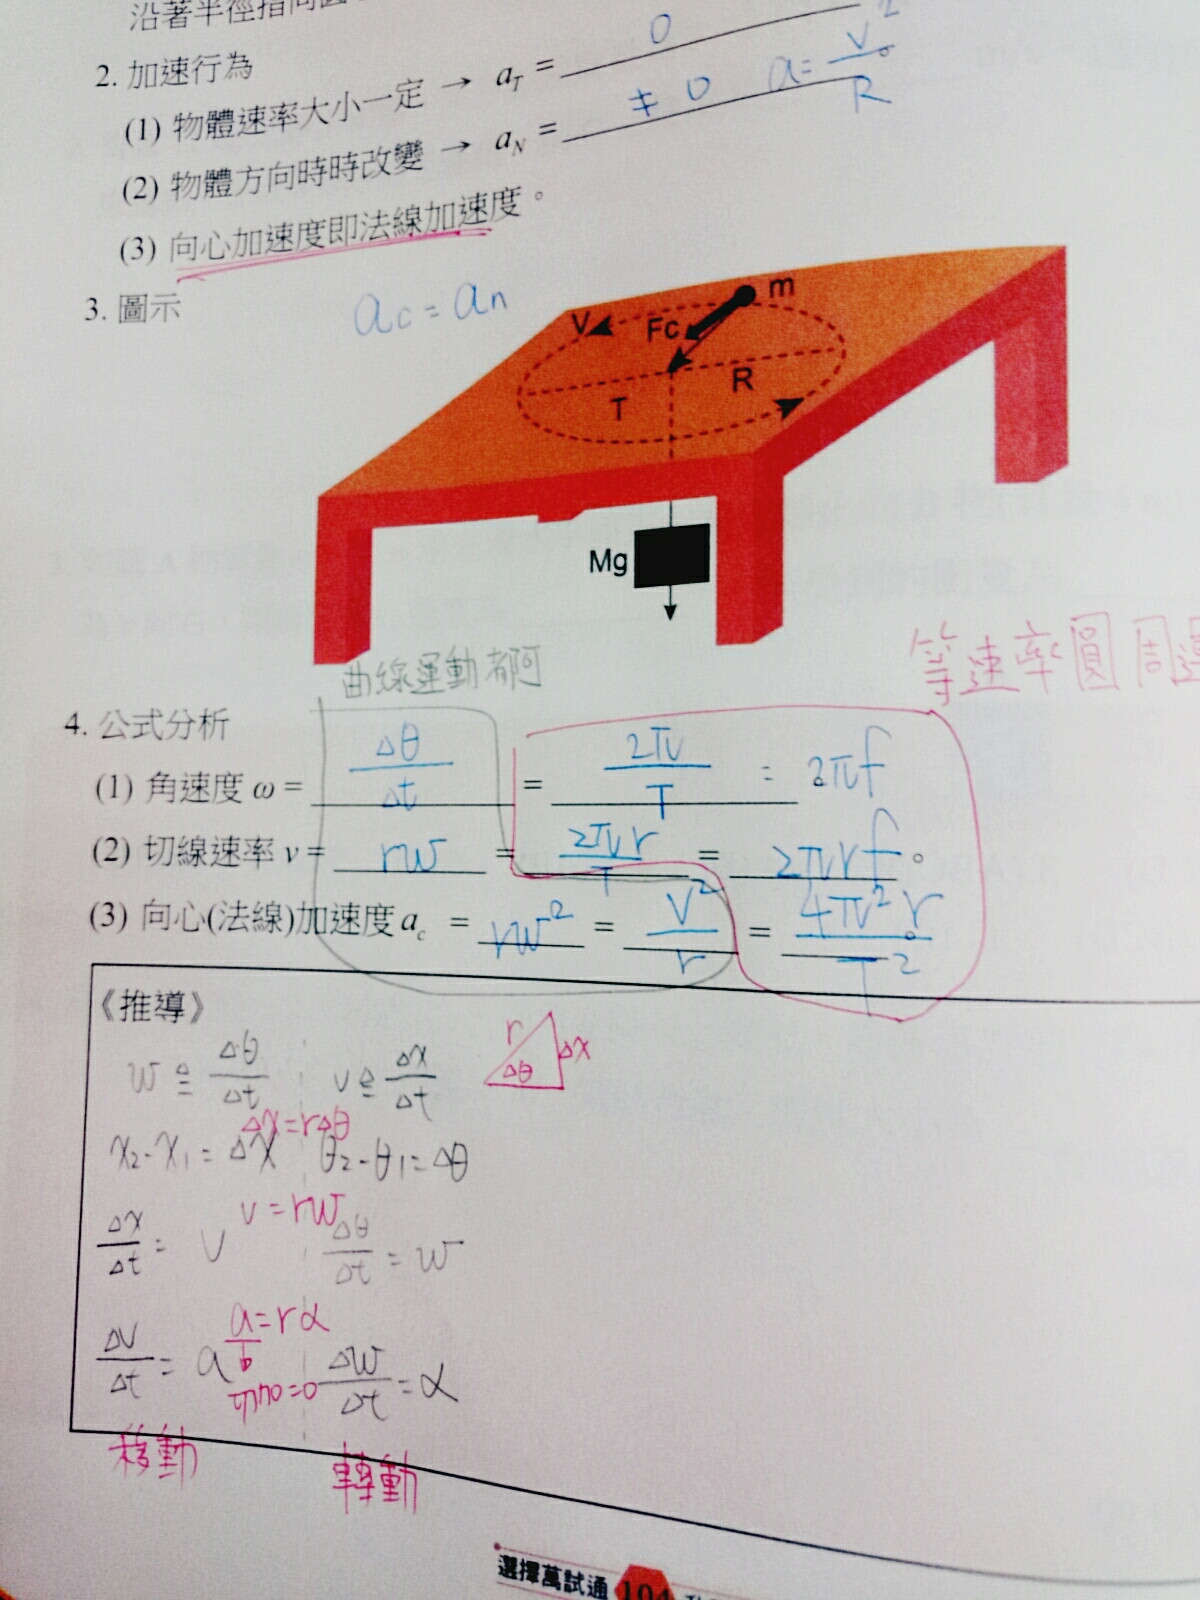 沿著半徑指向圓
2. 加速行為
(1) 物體速率大小一定 → a_T = 0
(2) 物體方向時時改變 → a_N = ≠ 0 a = v²/R 。
(3) 向心加速度即法線加速度。
3. 圖示
ac = an
m
V
Fc
R
T
Mg
曲線運動都可
等速率圓周運
4. 公式分析
(1) 角速度 ω = Δθ/Δt = 2π/T = 2πf
(2) 切線速率 v = rw = 2πr/T = 2πrf。
(3) 向心(法線)加速度 a_c = rw² = v²/r = 4π²r/T² 。
《推導》
w ≙ Δθ/Δt ; v ≙ Δx/Δt
r Δθ Δx
Δx = rΔθ
x₂-x₁ = Δx θ₂-θ₁ = Δθ
v = rw
Δx/Δt = v Δθ/Δt = w
a = rα
Δv/Δt = a Δw/Δt = α
移動 轉動
選擇萬試通 104